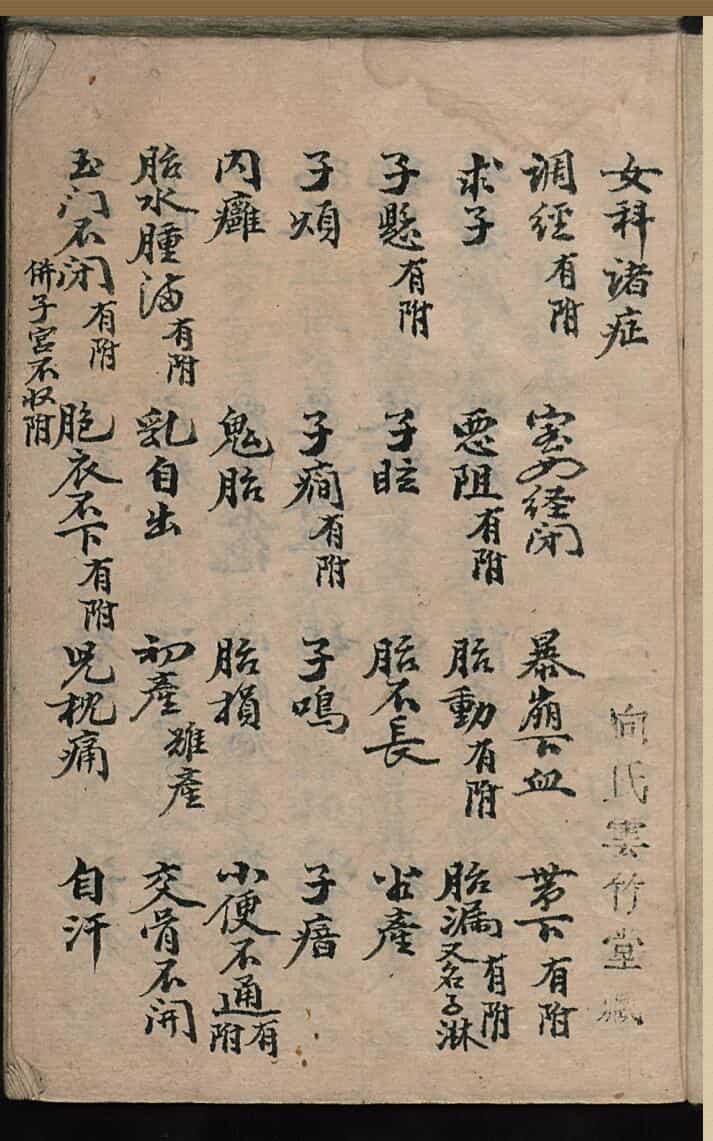 女科诸症
向氏雲竹堂藏
调經有附 室女经闭 暴崩下血 帶下有附
求子 惡阻有附 胎動有附 胎漏有附又名子淋
子懸有附 子眩 胎不長 半產
子煩 子癇有附 子鳴 子瘖
内癰 鬼胎 胎損 小便不通有附
胎水腫满有附 乳自出 初產难產 交骨不開
玉门不闭有附 胞衣不下有附 児枕痛 自汗
併子宫不收附